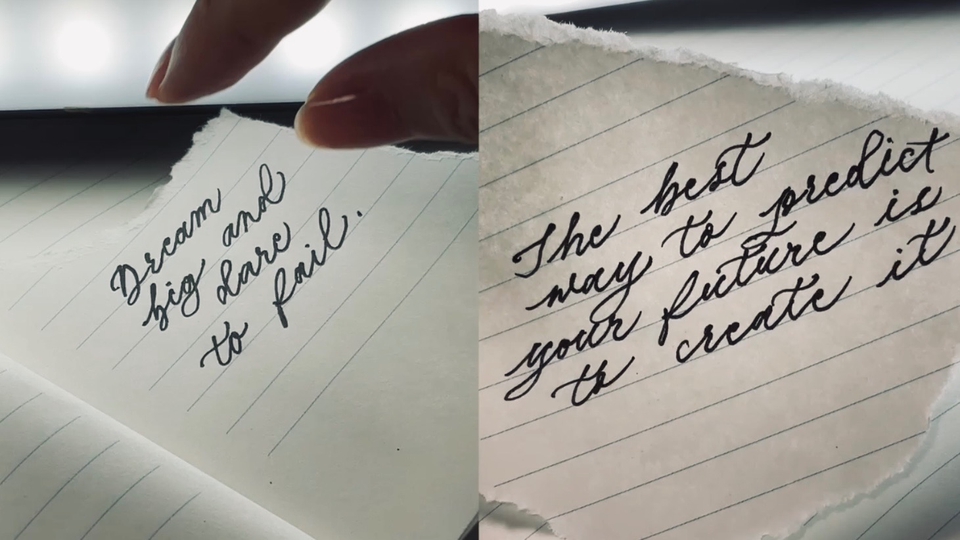 Dream
big and
dare
to fail.
The best
way to predict
your future is
to create it